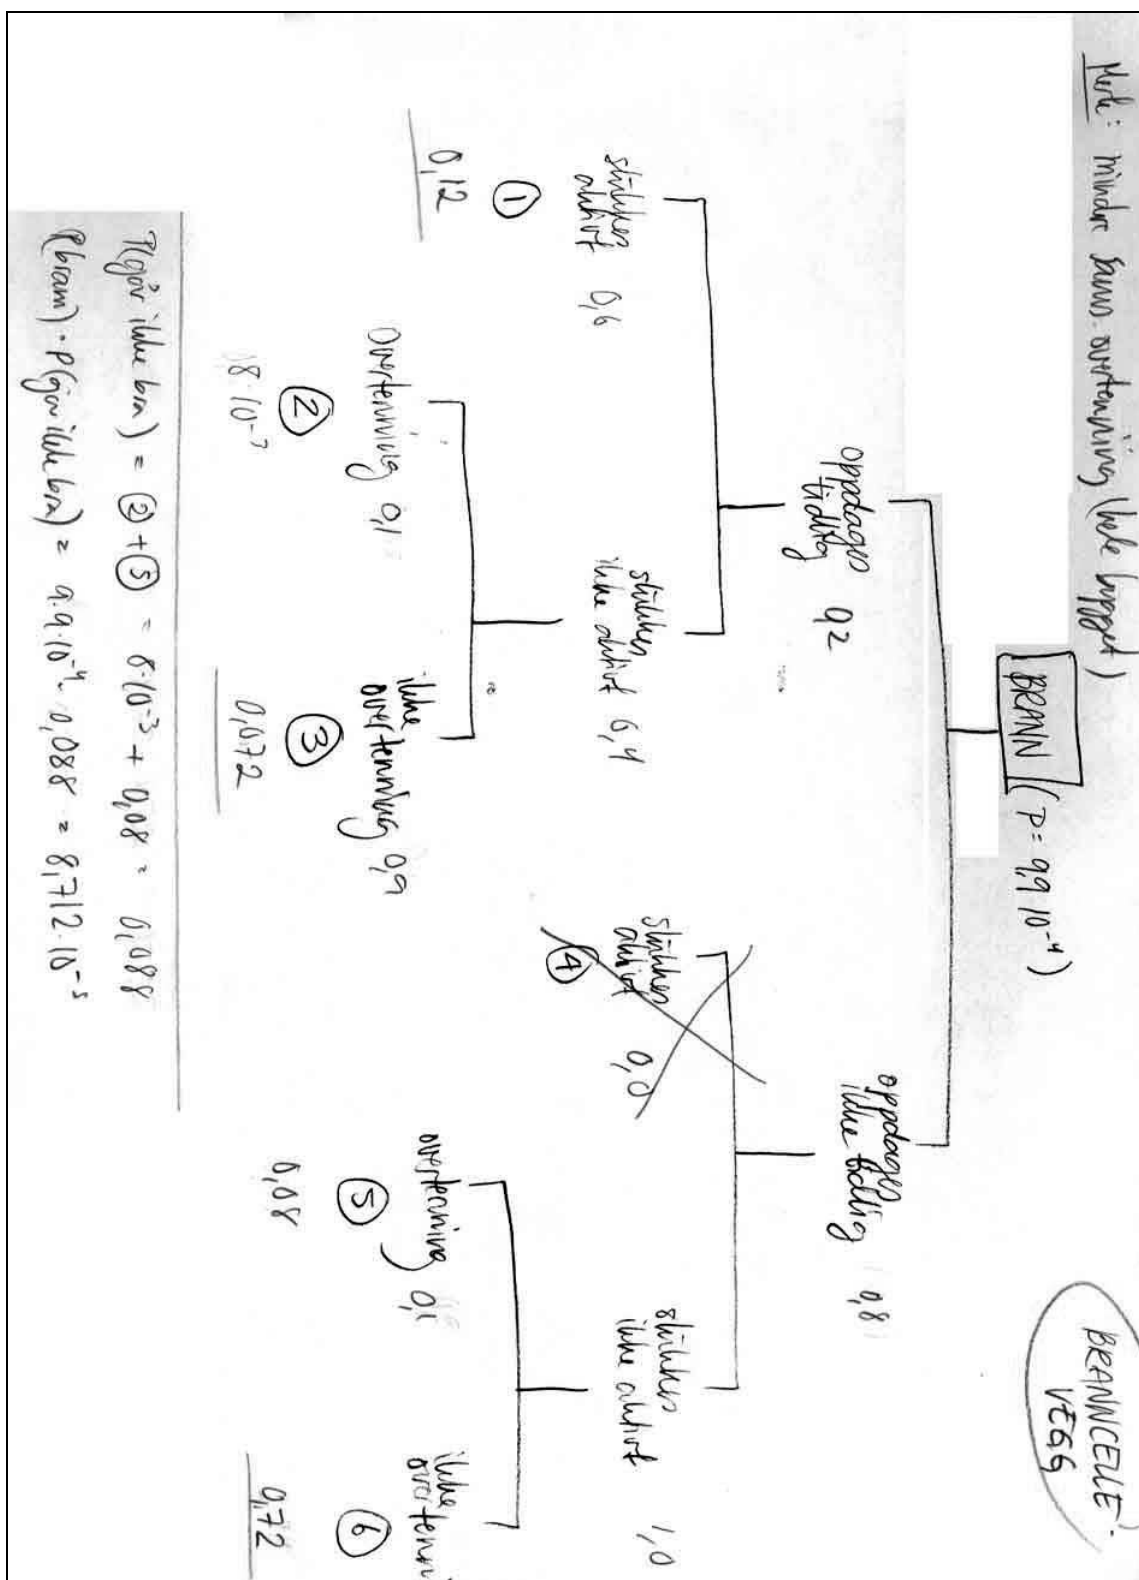 Merk: mindre sanns. overtenning (hele bygget)
BRANNCELLE-
VEGG
BRANN (P = 9,9·10⁻⁴)
oppdages
tidlig 0,2
oppdages
ikke tidlig 0,8
slukkes
aktivt 0,6
slukkes
ikke aktivt 0,4
slukkes
aktivt 0,0
④
slukkes
ikke aktivt 1,0
①
0,12
Overtenning 0,1
②
8·10⁻³
ikke
overtenning 0,9
③
0,072
overtenning 0,1
⑤
0,08
ikke
overtenni
⑥
0,72
P(går ikke bra) = ② + ⑤ = 8·10⁻³ + 0,08 = 0,088
P(brann) · P(går ikke bra) = 9.9·10⁻⁴ · 0,088 = 8,712·10⁻⁵